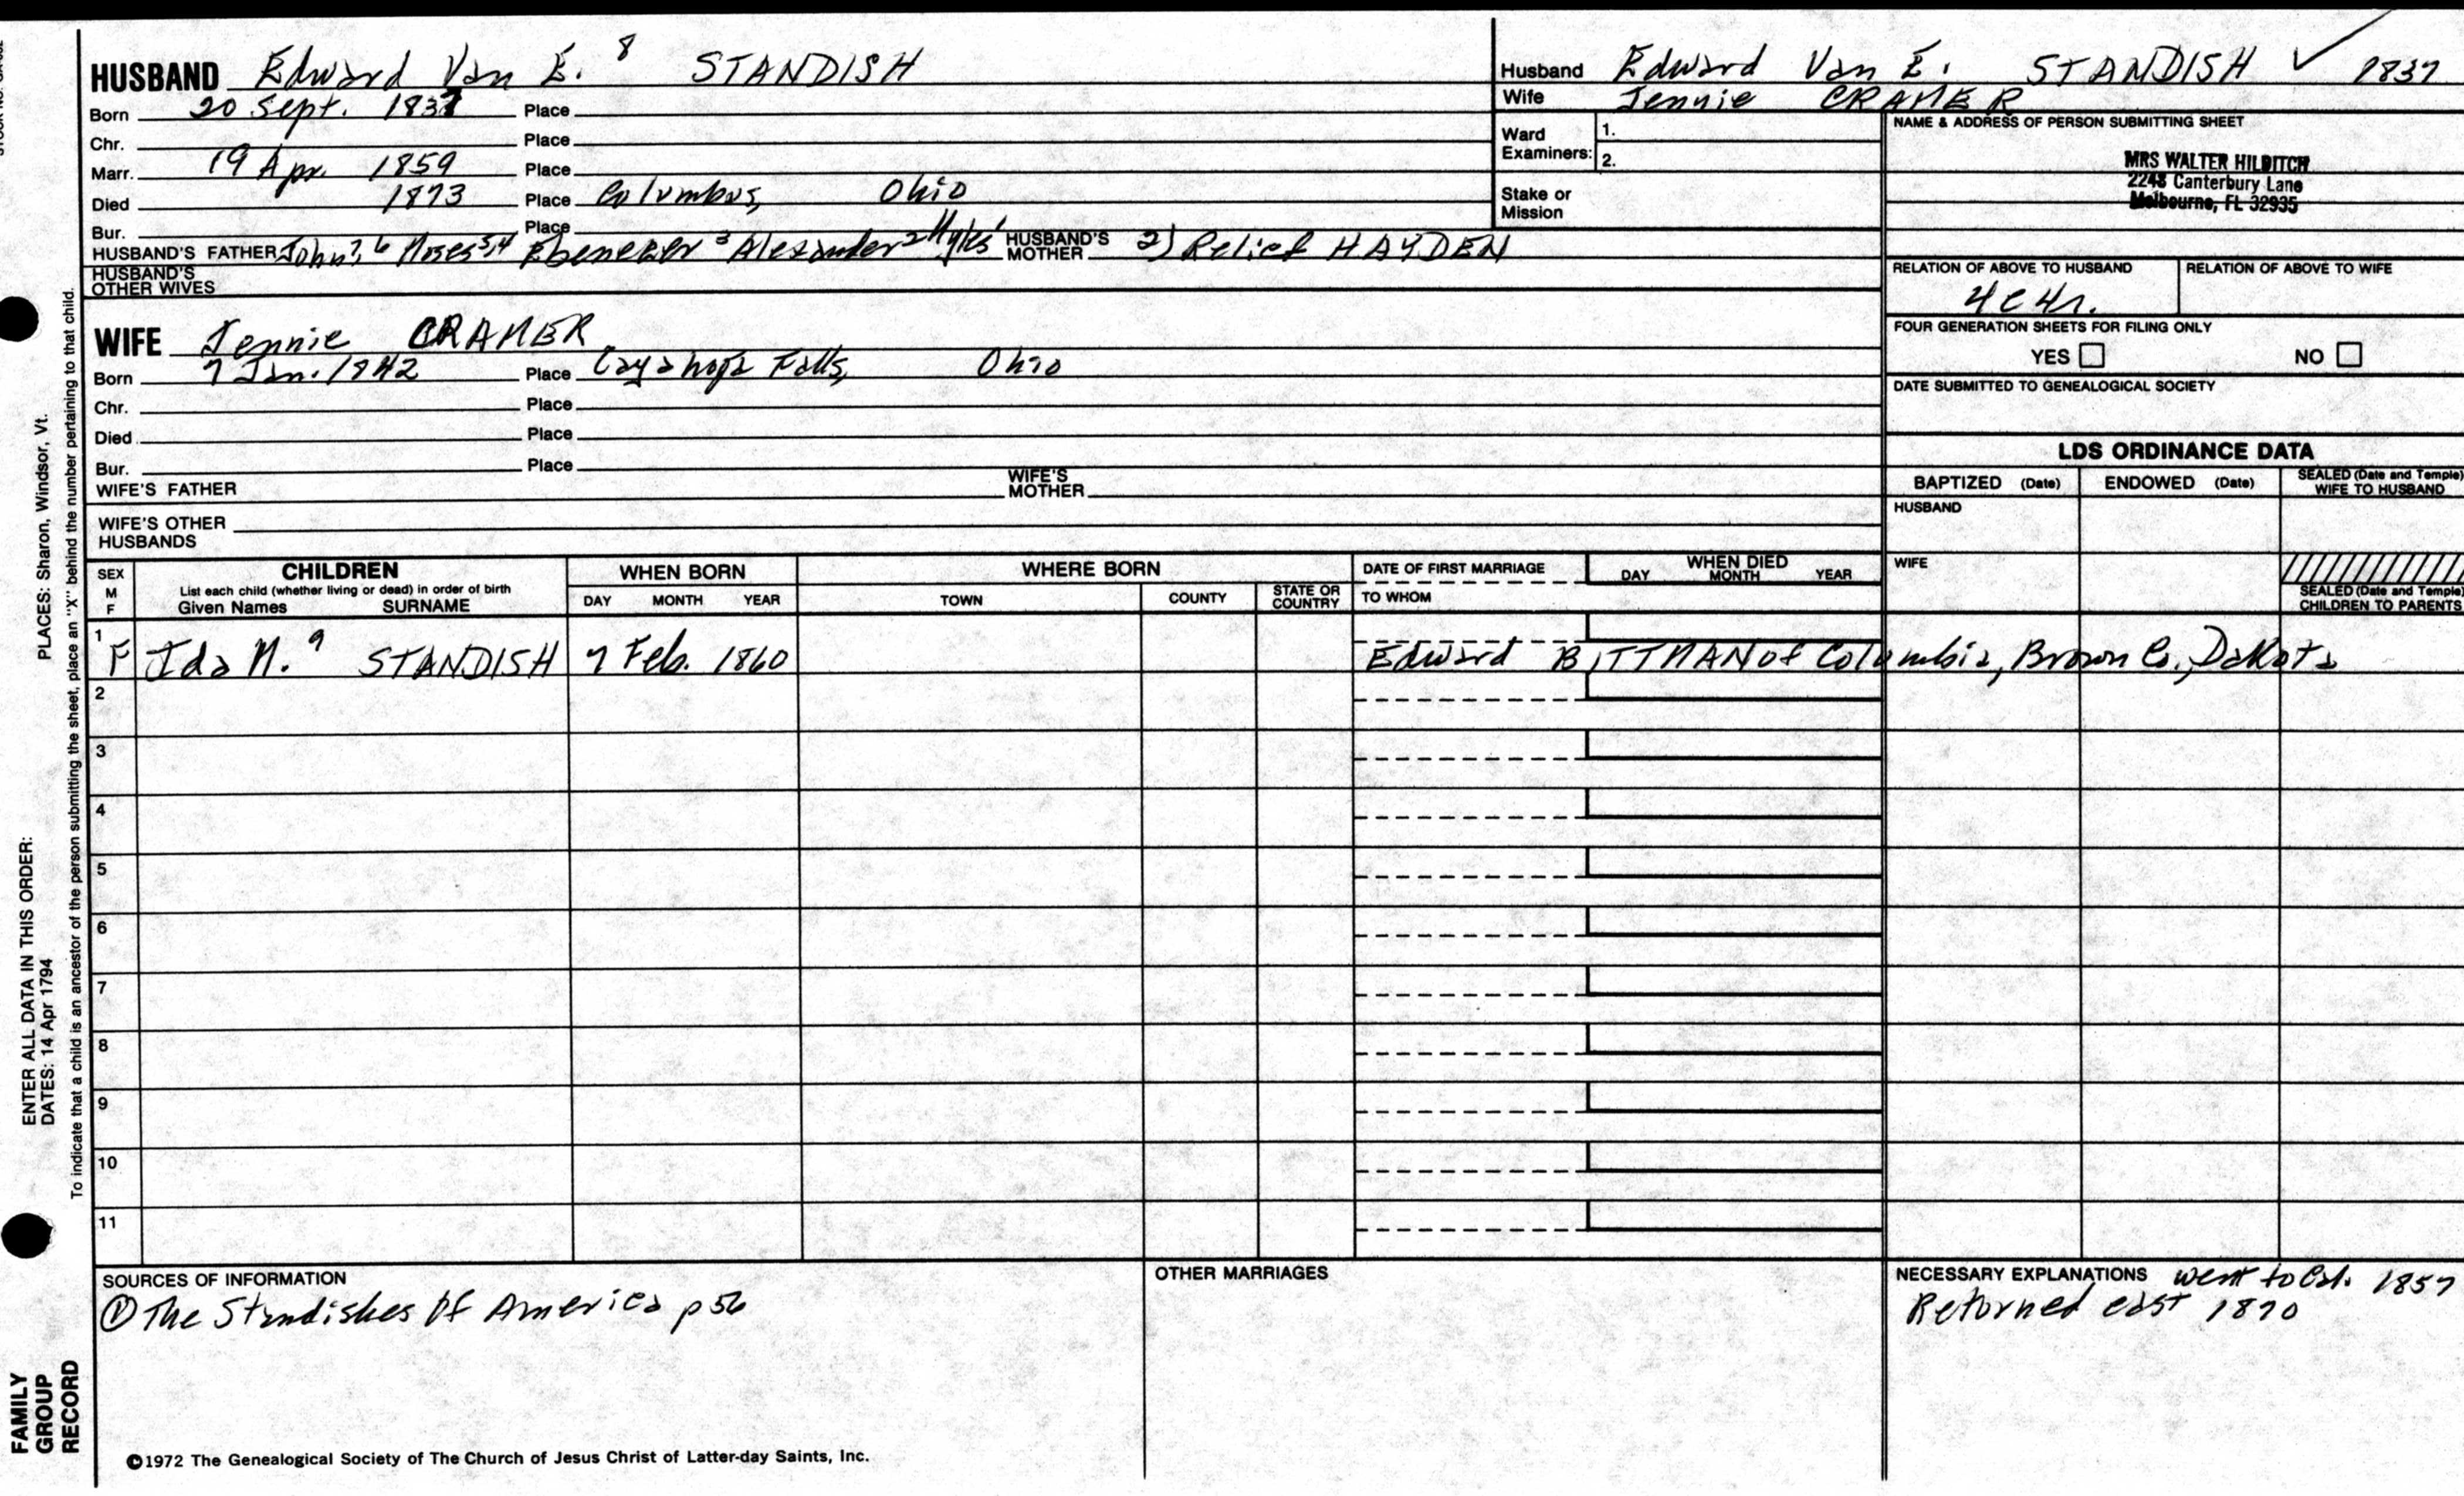 HUSBAND Edward Van E. 8 STANDISH
Born 20 Sept. 1837 Place
Chr. Place
Marr. 19 Apr. 1859 Place
Died 1873 Place Columbus, Ohio
Bur. Place
HUSBAND'S FATHER John7,6 Moses5,4 Ebenezer3 Alexander2 Myles1 HUSBAND'S MOTHER 2) Relief HAYDEN
HUSBAND'S
OTHER WIVES
Husband Edward Van E. STANDISH ✓ 1837
Wife Jennie CRAMER
Ward
Examiners: 1.
2.
Stake or
Mission
NAME & ADDRESS OF PERSON SUBMITTING SHEET
MRS WALTER HILDITCH
2248 Canterbury Lane
Melbourne, FL 32935
RELATION OF ABOVE TO HUSBAND RELATION OF ABOVE TO WIFE
4c4r.
FOUR GENERATION SHEETS FOR FILING ONLY
YES NO
DATE SUBMITTED TO GENEALOGICAL SOCIETY
WIFE Jennie CRAMER
Born 7 Jan. 1842 Place Cayahoga Falls, Ohio
Chr. Place
Died Place
Bur. Place
WIFE'S FATHER WIFE'S MOTHER
WIFE'S OTHER
HUSBANDS
LDS ORDINANCE DATA
BAPTIZED (Date) ENDOWED (Date) SEALED (Date and Temple)
WIFE TO HUSBAND
HUSBAND
WIFE
SEALED (Date and Temple)
CHILDREN TO PARENTS
SEX
M
F
CHILDREN
List each child (whether living or dead) in order of birth
Given Names SURNAME
WHEN BORN
DAY MONTH YEAR
WHERE BORN
TOWN COUNTY STATE OR
COUNTRY
DATE OF FIRST MARRIAGE
TO WHOM
WHEN DIED
DAY MONTH YEAR
1 F Ida M. 9 STANDISH 7 Feb. 1860 Edward BITTMAN of Columbia, Brown Co., Dakota
2
3
4
5
6
7
8
9
10
11
SOURCES OF INFORMATION
① The Standishes of America p 56
OTHER MARRIAGES
NECESSARY EXPLANATIONS went to Cal. 1857
Returned east 1870
©1972 The Genealogical Society of The Church of Jesus Christ of Latter-day Saints, Inc.
ENTER ALL DATA IN THIS ORDER:
DATES: 14 Apr 1794 PLACES: Sharon, Windsor, Vt.
To indicate that a child is an ancestor of the person submitting the sheet, place an "X" behind the number pertaining to that child.
FAMILY
GROUP
RECORD